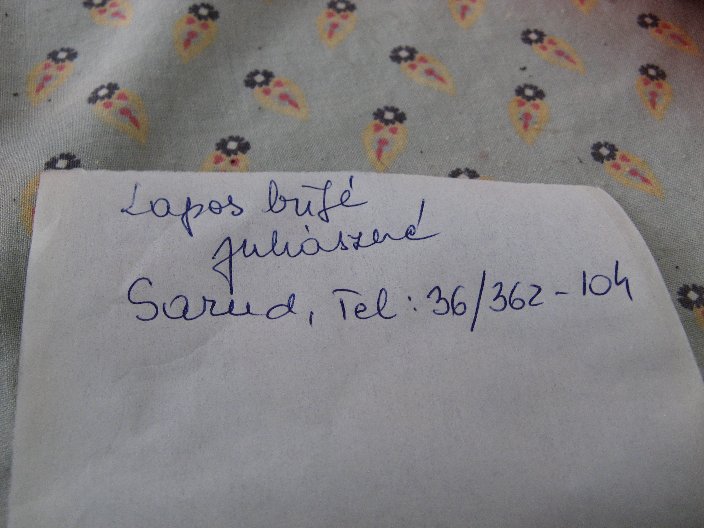 Lapos büfé
Juhászné
Sarud, Tel: 36/362-104